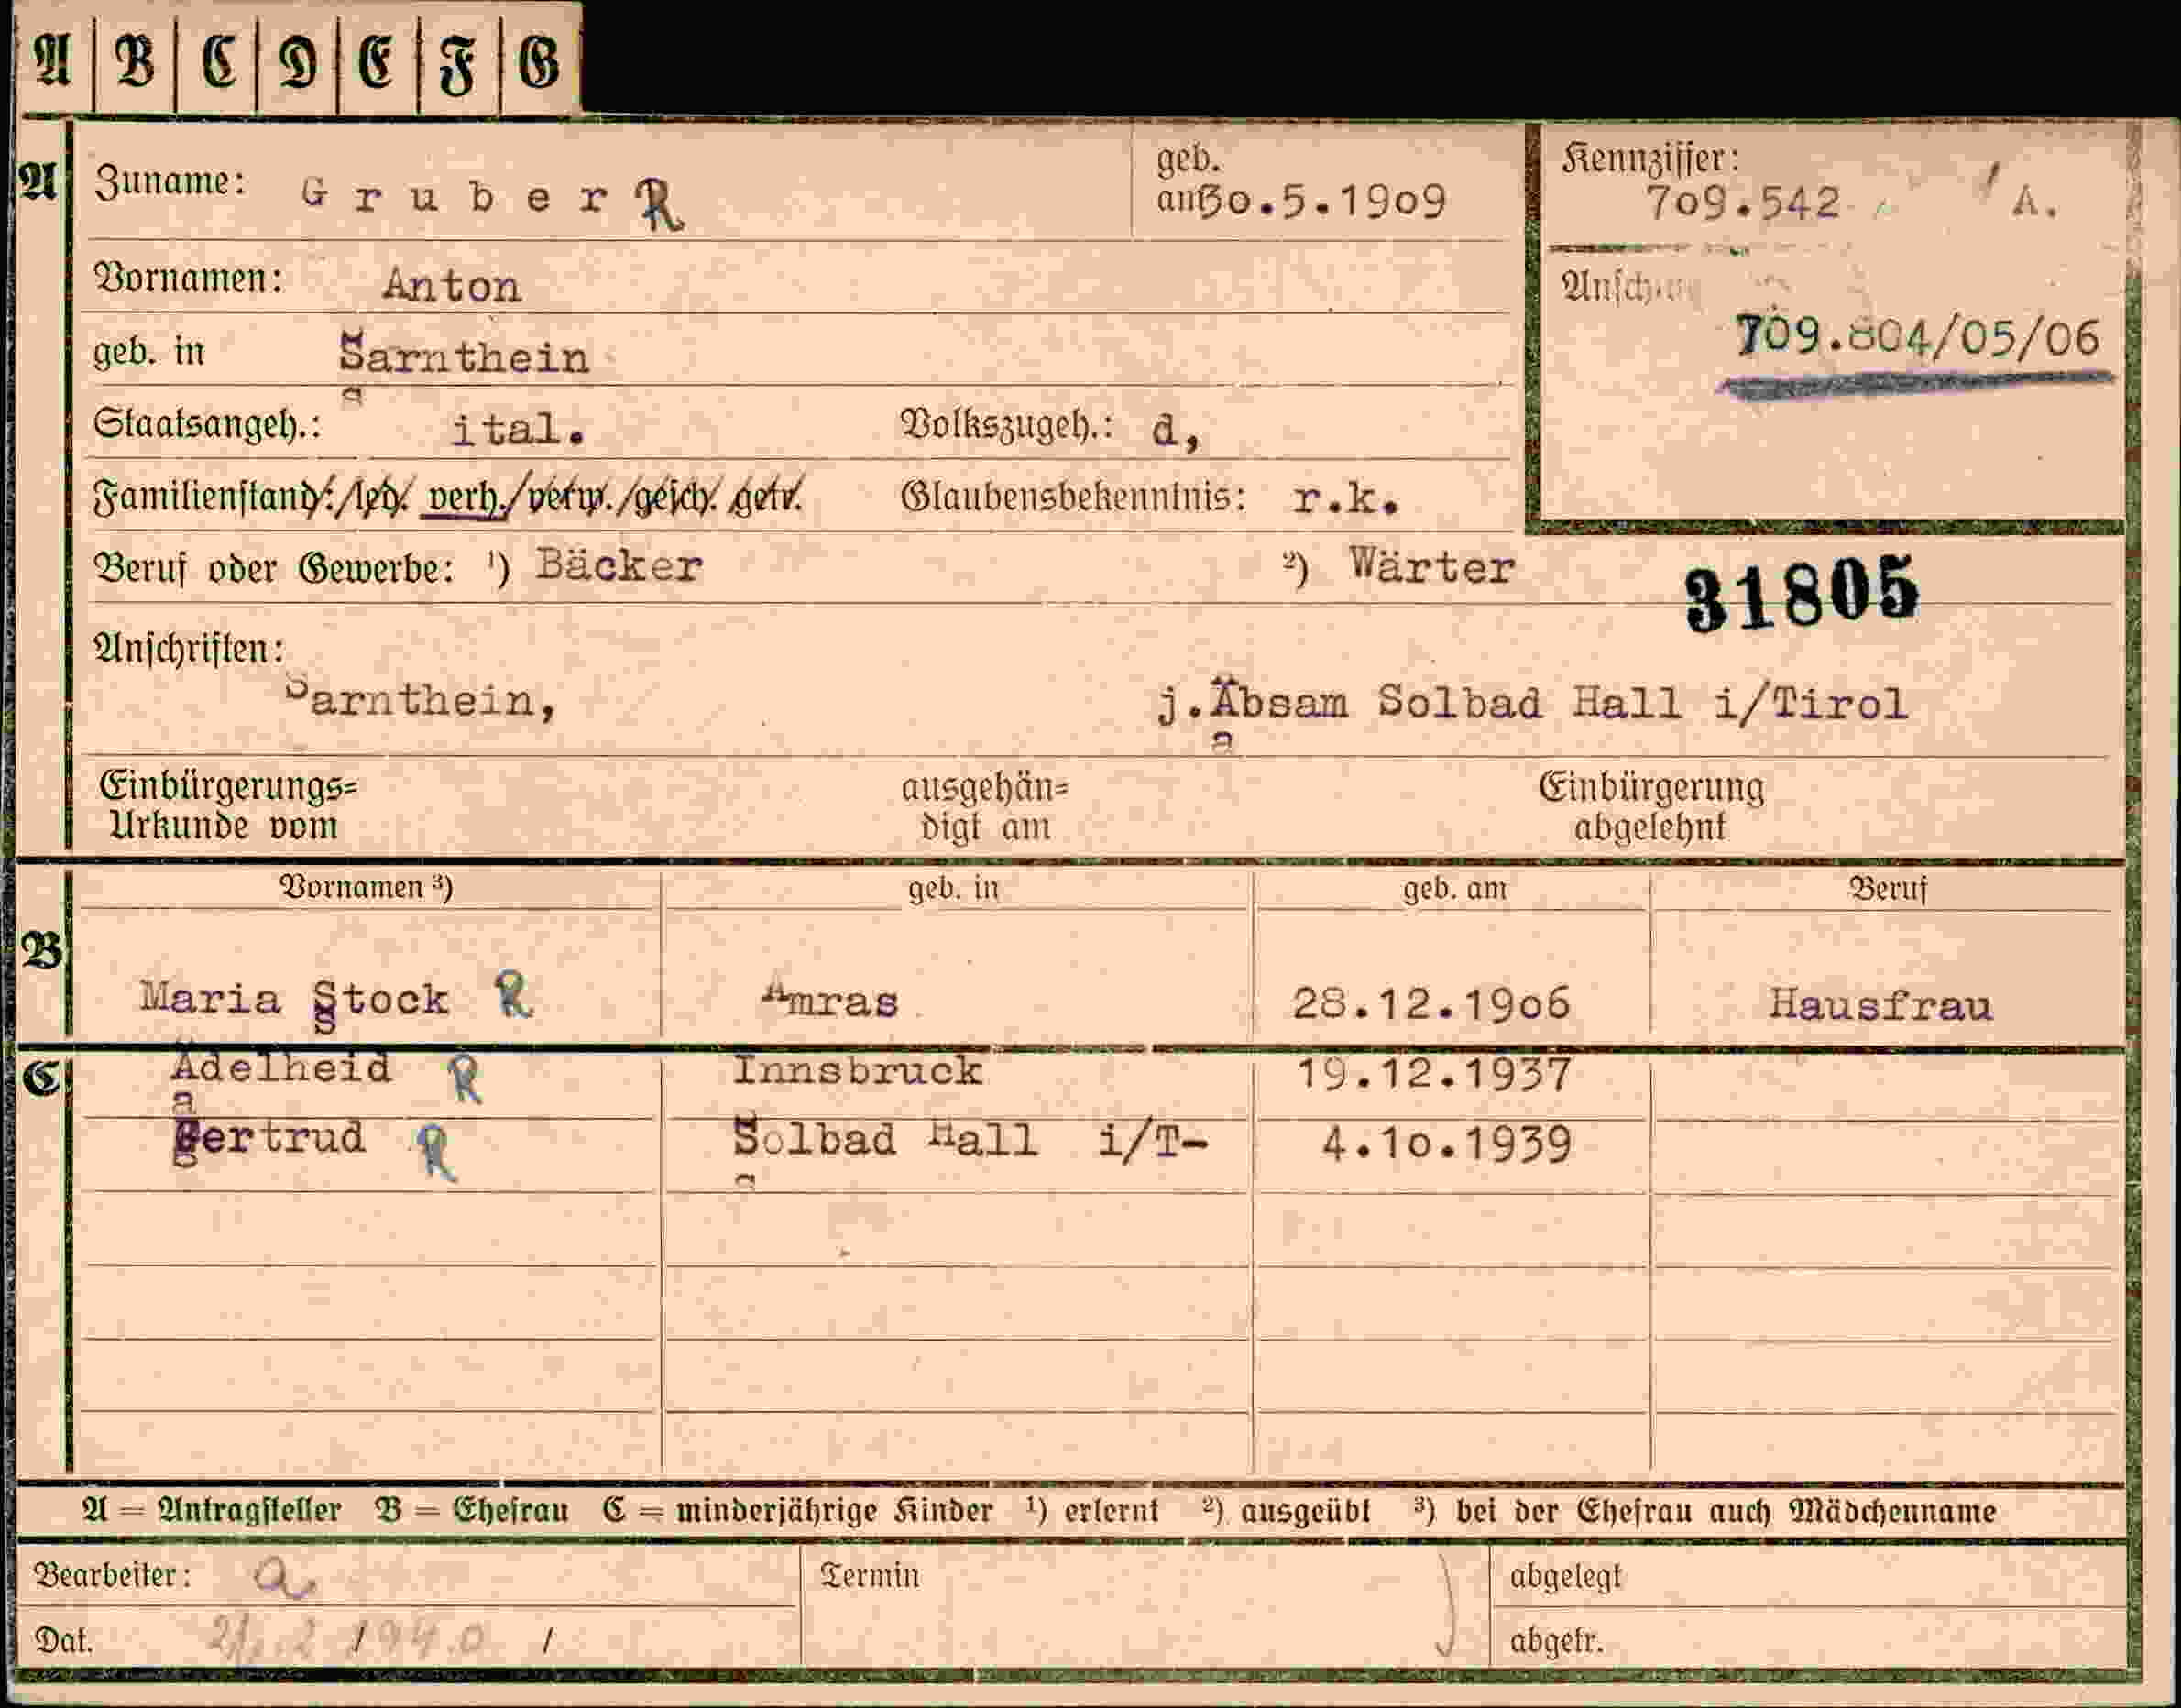 A B C D E F G
A Zuname: Gruber R geb. am 30.5.1909 Kennziffer: 709.542 A.
Vornamen: Anton
geb. in Sarnthein 709.804/05/06
Staatsangeh.: ital. Volkszugeh.: d,
Familienstand: /led. verh./verw./gesch. getr. Glaubensbekenntnis: r.k.
Beruf oder Gewerbe: ¹) Bäcker ²) Wärter 31805
Anschriften:
Sarnthein, j.Absam Solbad Hall i/Tirol
Einbürgerungs= ausgehän= Einbürgerung
Urkunde vom digt am abgelehnt
Vornamen ³) geb. in geb. am Beruf
B
Maria Stock R Amras 28.12.1906 Hausfrau
C Adelheid R Innsbruck 19.12.1937
Gertrud R Solbad Hall i/T- 4.10.1939
A = Antragsteller B = Ehefrau C = minderjährige Kinder ¹) erlernt ²) ausgeübt ³) bei der Ehefrau auch Mädchenname
Bearbeiter: a Termin abgelegt
Dat. 1940 abgetr.